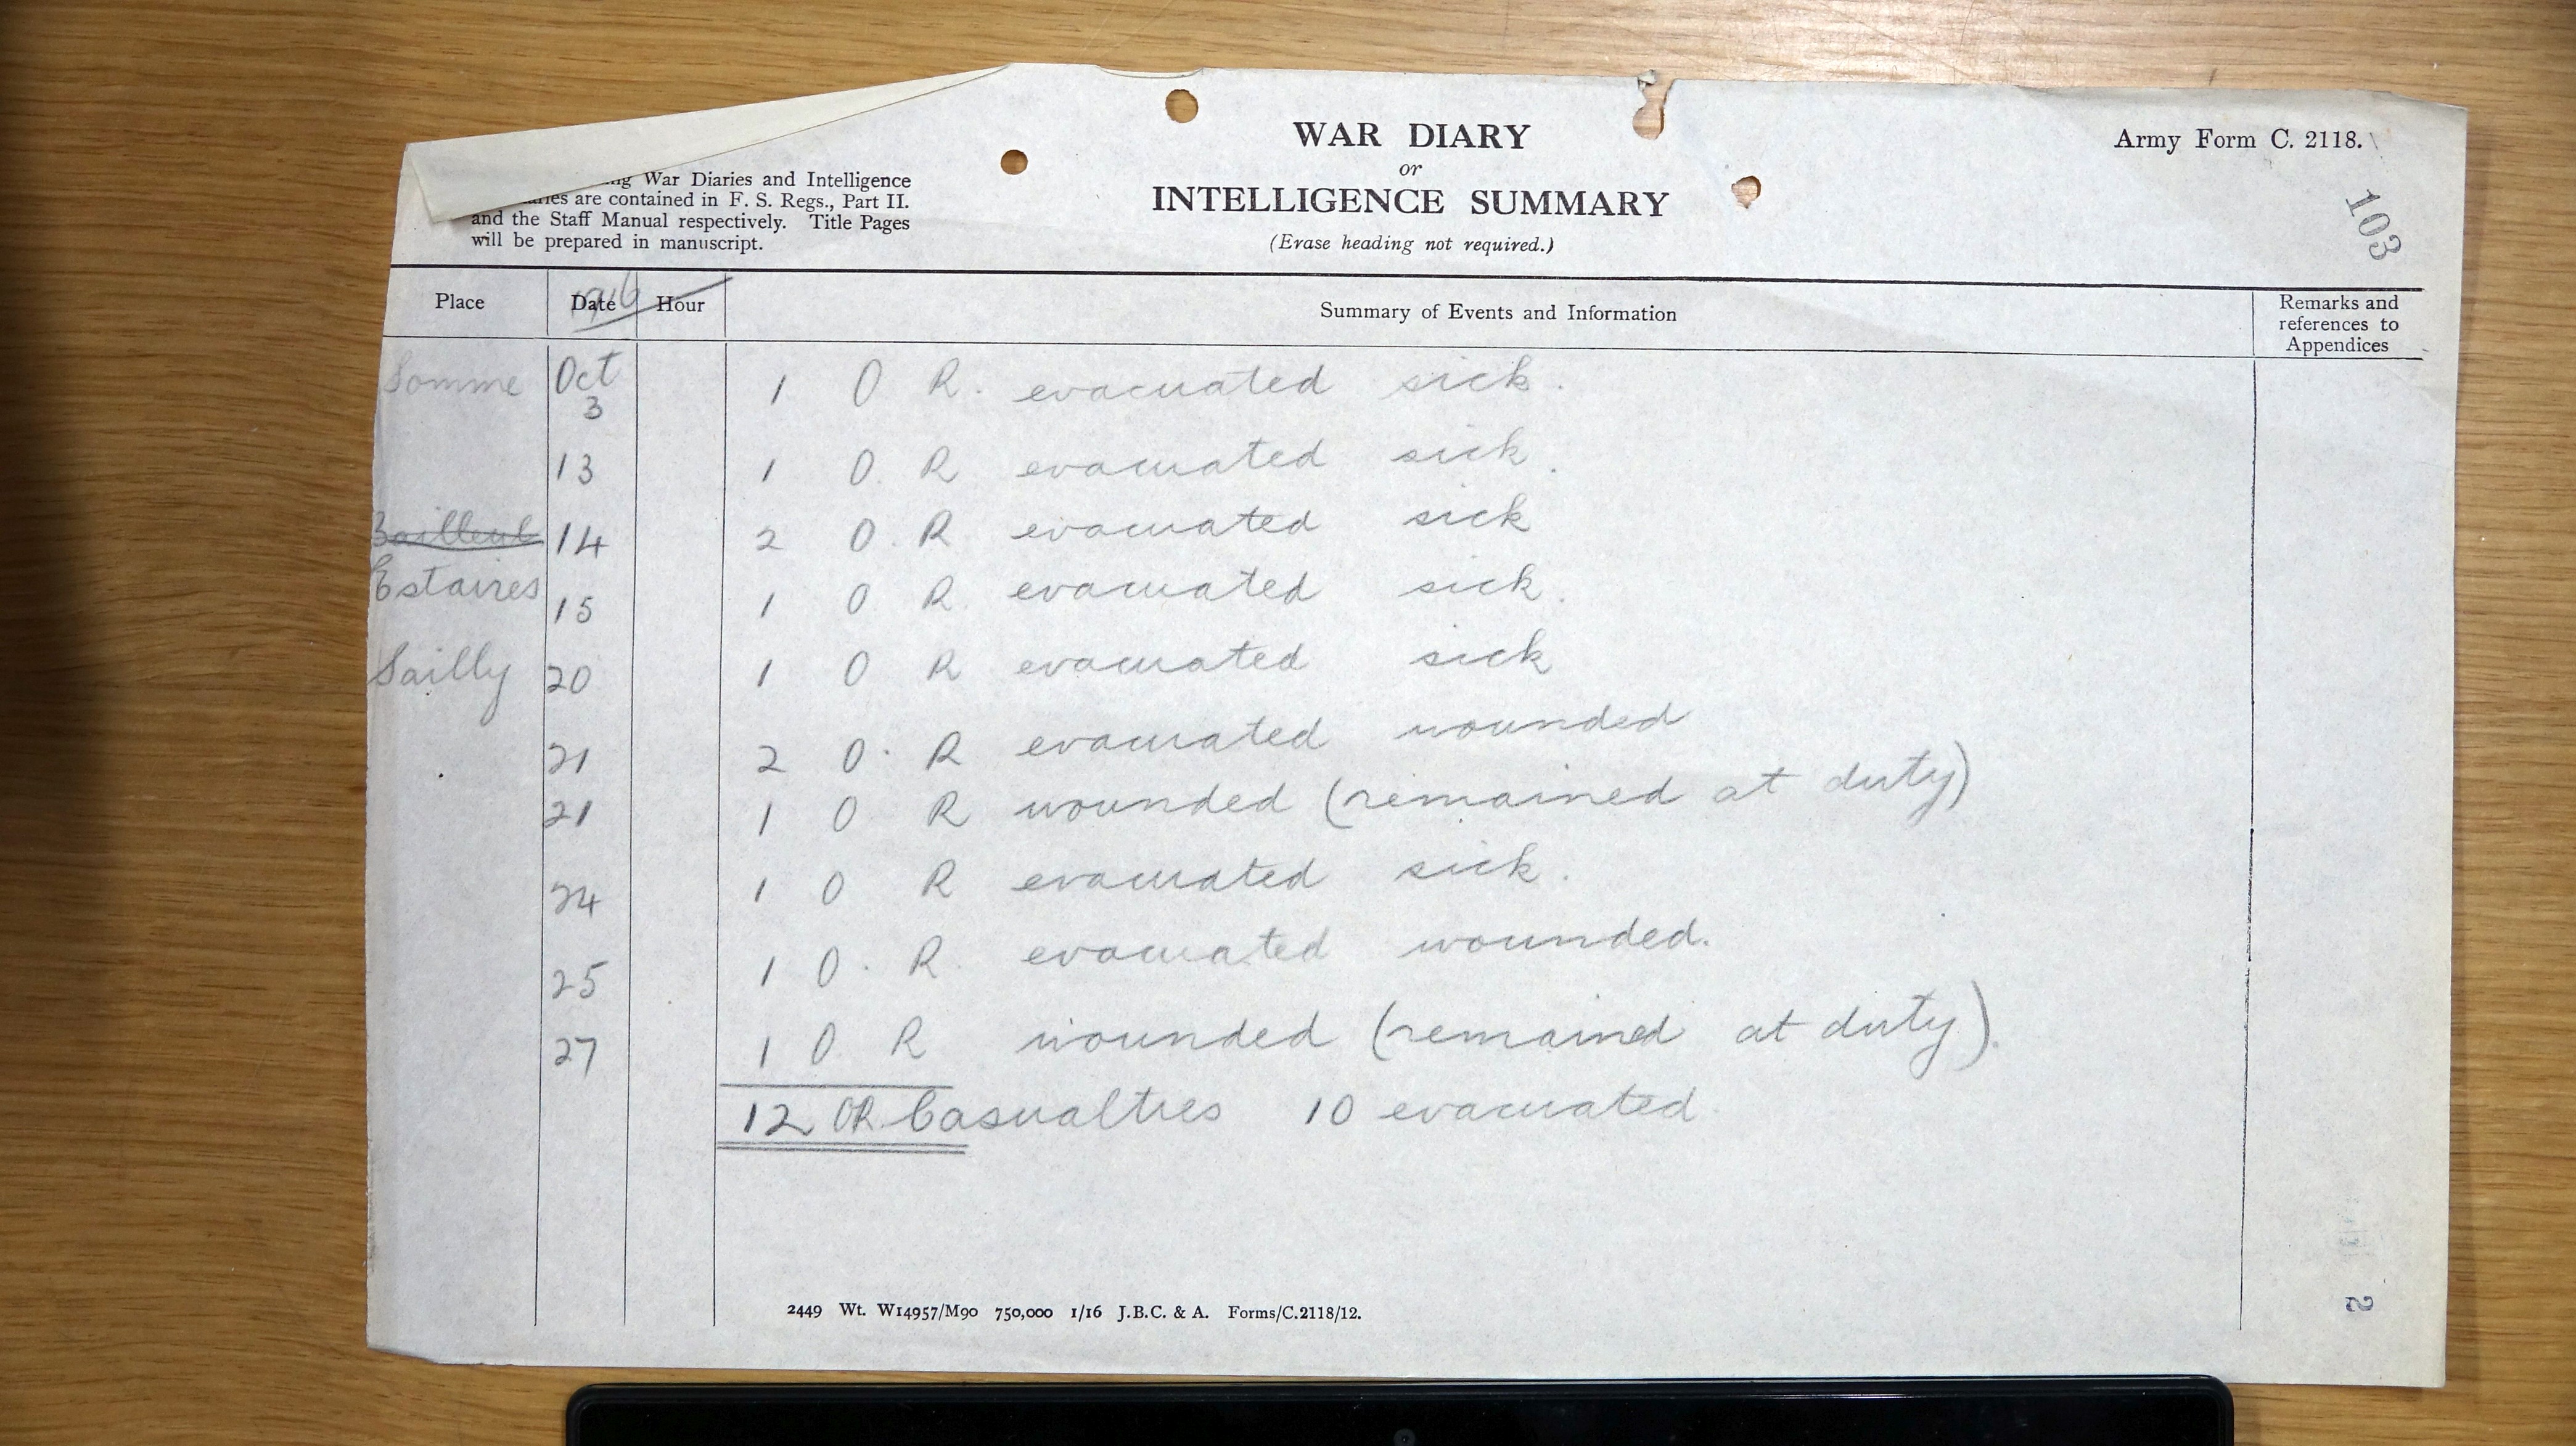 WAR DIARY
or
INTELLIGENCE SUMMARY
(Erase heading not required.)
Army Form C. 2118.
103
War Diaries and Intelligence
are contained in F. S. Regs., Part II.
and the Staff Manual respectively. Title Pages
will be prepared in manuscript.
1916
Place Date Hour Summary of Events and Information Remarks and references to Appendices
Somme Oct 3 1 O R. evacuated sick.
13 1 O. R evacuated sick.
Bailleul 14 2 O. R evacuated sick
Estaires 15 1 O R. evacuated sick.
Sailly 20 1 O R evacuated sick
21 2 O. R evacuated wounded
21 1 O R wounded (remained at duty)
24 1 O R evacuated sick.
25 1 O. R. evacuated wounded.
27 1 O R wounded (remained at duty).
12 OR. Casualties 10 evacuated.
2449 Wt. W14957/M90 750,000 1/16 J.B.C. & A. Forms/C.2118/12.
2